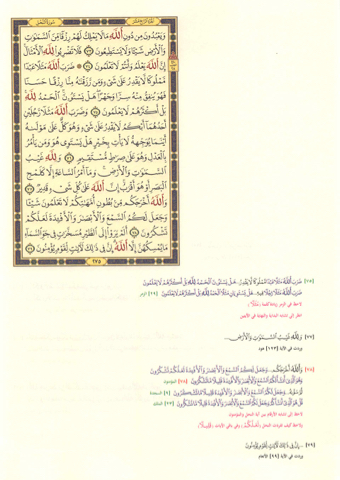 الجزء الرابع عشر
سورة النحل
وَيَعْبُدُونَ مِن دُونِ ٱللَّهِ مَا لَا يَمْلِكُ لَهُمْ رِزْقًا مِّنَ ٱلسَّمَٰوَٰتِ
وَٱلْأَرْضِ شَيْـًٔا وَلَا يَسْتَطِيعُونَ ٧٣ فَلَا تَضْرِبُوا۟ لِلَّهِ ٱلْأَمْثَالَ
إِنَّ ٱللَّهَ يَعْلَمُ وَأَنتُمْ لَا تَعْلَمُونَ ٧٤ ۞ ضَرَبَ ٱللَّهُ مَثَلًا عَبْدًا
مَّمْلُوكًا لَّا يَقْدِرُ عَلَىٰ شَىْءٍ وَمَن رَّزَقْنَٰهُ مِنَّا رِزْقًا حَسَنًا
فَهُوَ يُنفِقُ مِنْهُ سِرًّا وَجَهْرًا هَلْ يَسْتَوُۥنَ ٱلْحَمْدُ لِلَّهِ
بَلْ أَكْثَرُهُمْ لَا يَعْلَمُونَ ٧٥ وَضَرَبَ ٱللَّهُ مَثَلًا رَّجُلَيْنِ
أَحَدُهُمَآ أَبْكَمُ لَا يَقْدِرُ عَلَىٰ شَىْءٍ وَهُوَ كَلٌّ عَلَىٰ مَوْلَىٰهُ
أَيْنَمَا يُوَجِّههُّ لَا يَأْتِ بِخَيْرٍ هَلْ يَسْتَوِى هُوَ وَمَن يَأْمُرُ
بِٱلْعَدْلِ وَهُوَ عَلَىٰ صِرَٰطٍ مُّسْتَقِيمٍ ٧٦ وَلِلَّهِ غَيْبُ
ٱلسَّمَٰوَٰتِ وَٱلْأَرْضِ وَمَآ أَمْرُ ٱلسَّاعَةِ إِلَّا كَلَمْحِ
ٱلْبَصَرِ أَوْ هُوَ أَقْرَبُ إِنَّ ٱللَّهَ عَلَىٰ كُلِّ شَىْءٍ قَدِيرٌ ٧٧
وَٱللَّهُ أَخْرَجَكُم مِّنۢ بُطُونِ أُمَّهَٰتِكُمْ لَا تَعْلَمُونَ شَيْـًٔا
وَجَعَلَ لَكُمُ ٱلسَّمْعَ وَٱلْأَبْصَٰرَ وَٱلْأَفْـِٔدَةَ لَعَلَّكُمْ
تَشْكُرُونَ ٧٨ أَلَمْ يَرَوْا۟ إِلَى ٱلطَّيْرِ مُسَخَّرَٰتٍ فِى جَوِّ ٱلسَّمَآءِ
مَا يُمْسِكُهُنَّ إِلَّا ٱللَّهُ إِنَّ فِى ذَٰلِكَ لَءَايَٰتٍ لِّقَوْمٍ يُؤْمِنُونَ ٧٩
٢٧٥
[٧٥] ضَرَبَ ٱللَّهُ مَثَلًا عَبْدًا مَّمْلُوكًا لَّا يَقْدِرُ ... هَلْ يَسْتَوُۥنَ ٱلْحَمْدُ لِلَّهِ بَلْ أَكْثَرُهُمْ لَا يَعْلَمُونَ
ضَرَبَ ٱللَّهُ مَثَلًا رَّجُلًا فِيهِ ... هَلْ يَسْتَوِيَانِ مَثَلًا ٱلْحَمْدُ لِلَّهِ بَلْ أَكْثَرُهُمْ لَا يَعْلَمُونَ [٢٩] الزمر
[٧٧] وَلِلَّهِ غَيْبُ ٱلسَّمَٰوَٰتِ وَٱلْأَرْضِ ...
وردت في الآية [١٢٣] هود
[٧٨] وَٱللَّهُ أَخْرَجَكُم ... وَجَعَلَ لَكُمُ ٱلسَّمْعَ وَٱلْأَبْصَٰرَ وَٱلْأَفْـِٔدَةَ لَعَلَّكُمْ تَشْكُرُونَ
وَهُوَ ٱلَّذِىٓ أَنشَأَ لَكُمُ ٱلسَّمْعَ وَٱلْأَبْصَٰرَ وَٱلْأَفْـِٔدَةَ قَلِيلًا مَّا تَشْكُرُونَ [٧٨] المؤمنون
وَجَعَلَ لَكُمُ ٱلسَّمْعَ وَٱلْأَبْصَٰرَ وَٱلْأَفْـِٔدَةَ قَلِيلًا مَّا تَشْكُرُونَ [٩] السجدة
قُلْ هُوَ ٱلَّذِىٓ أَنشَأَكُمْ وَجَعَلَ لَكُمُ ٱلسَّمْعَ وَٱلْأَبْصَٰرَ وَٱلْأَفْـِٔدَةَ قَلِيلًا مَّا تَشْكُرُونَ [٢٣] الملك
[٧٩] ... إِنَّ فِى ذَٰلِكَ لَءَايَٰتٍ لِّقَوْمٍ يُؤْمِنُونَ
وردت في الآية [٩٩] الأنعام